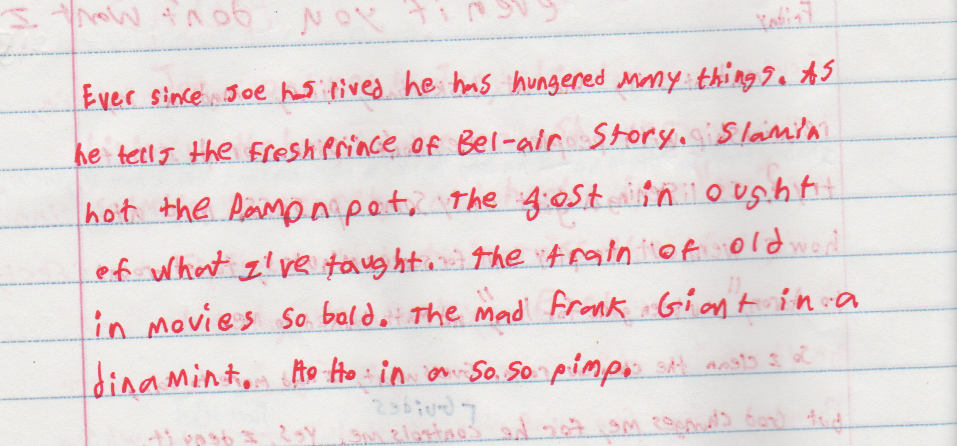 Ever since Joe has lived he has hungered many things. As
he tells the fresh prince of Bel-air story. Slamin
hot the Pamp n pot. The gost in ought
of what I've taught. The train of old
in movies so bold. The mad frank Giant in a
dinamint. Ho Ho in a so so pimp.